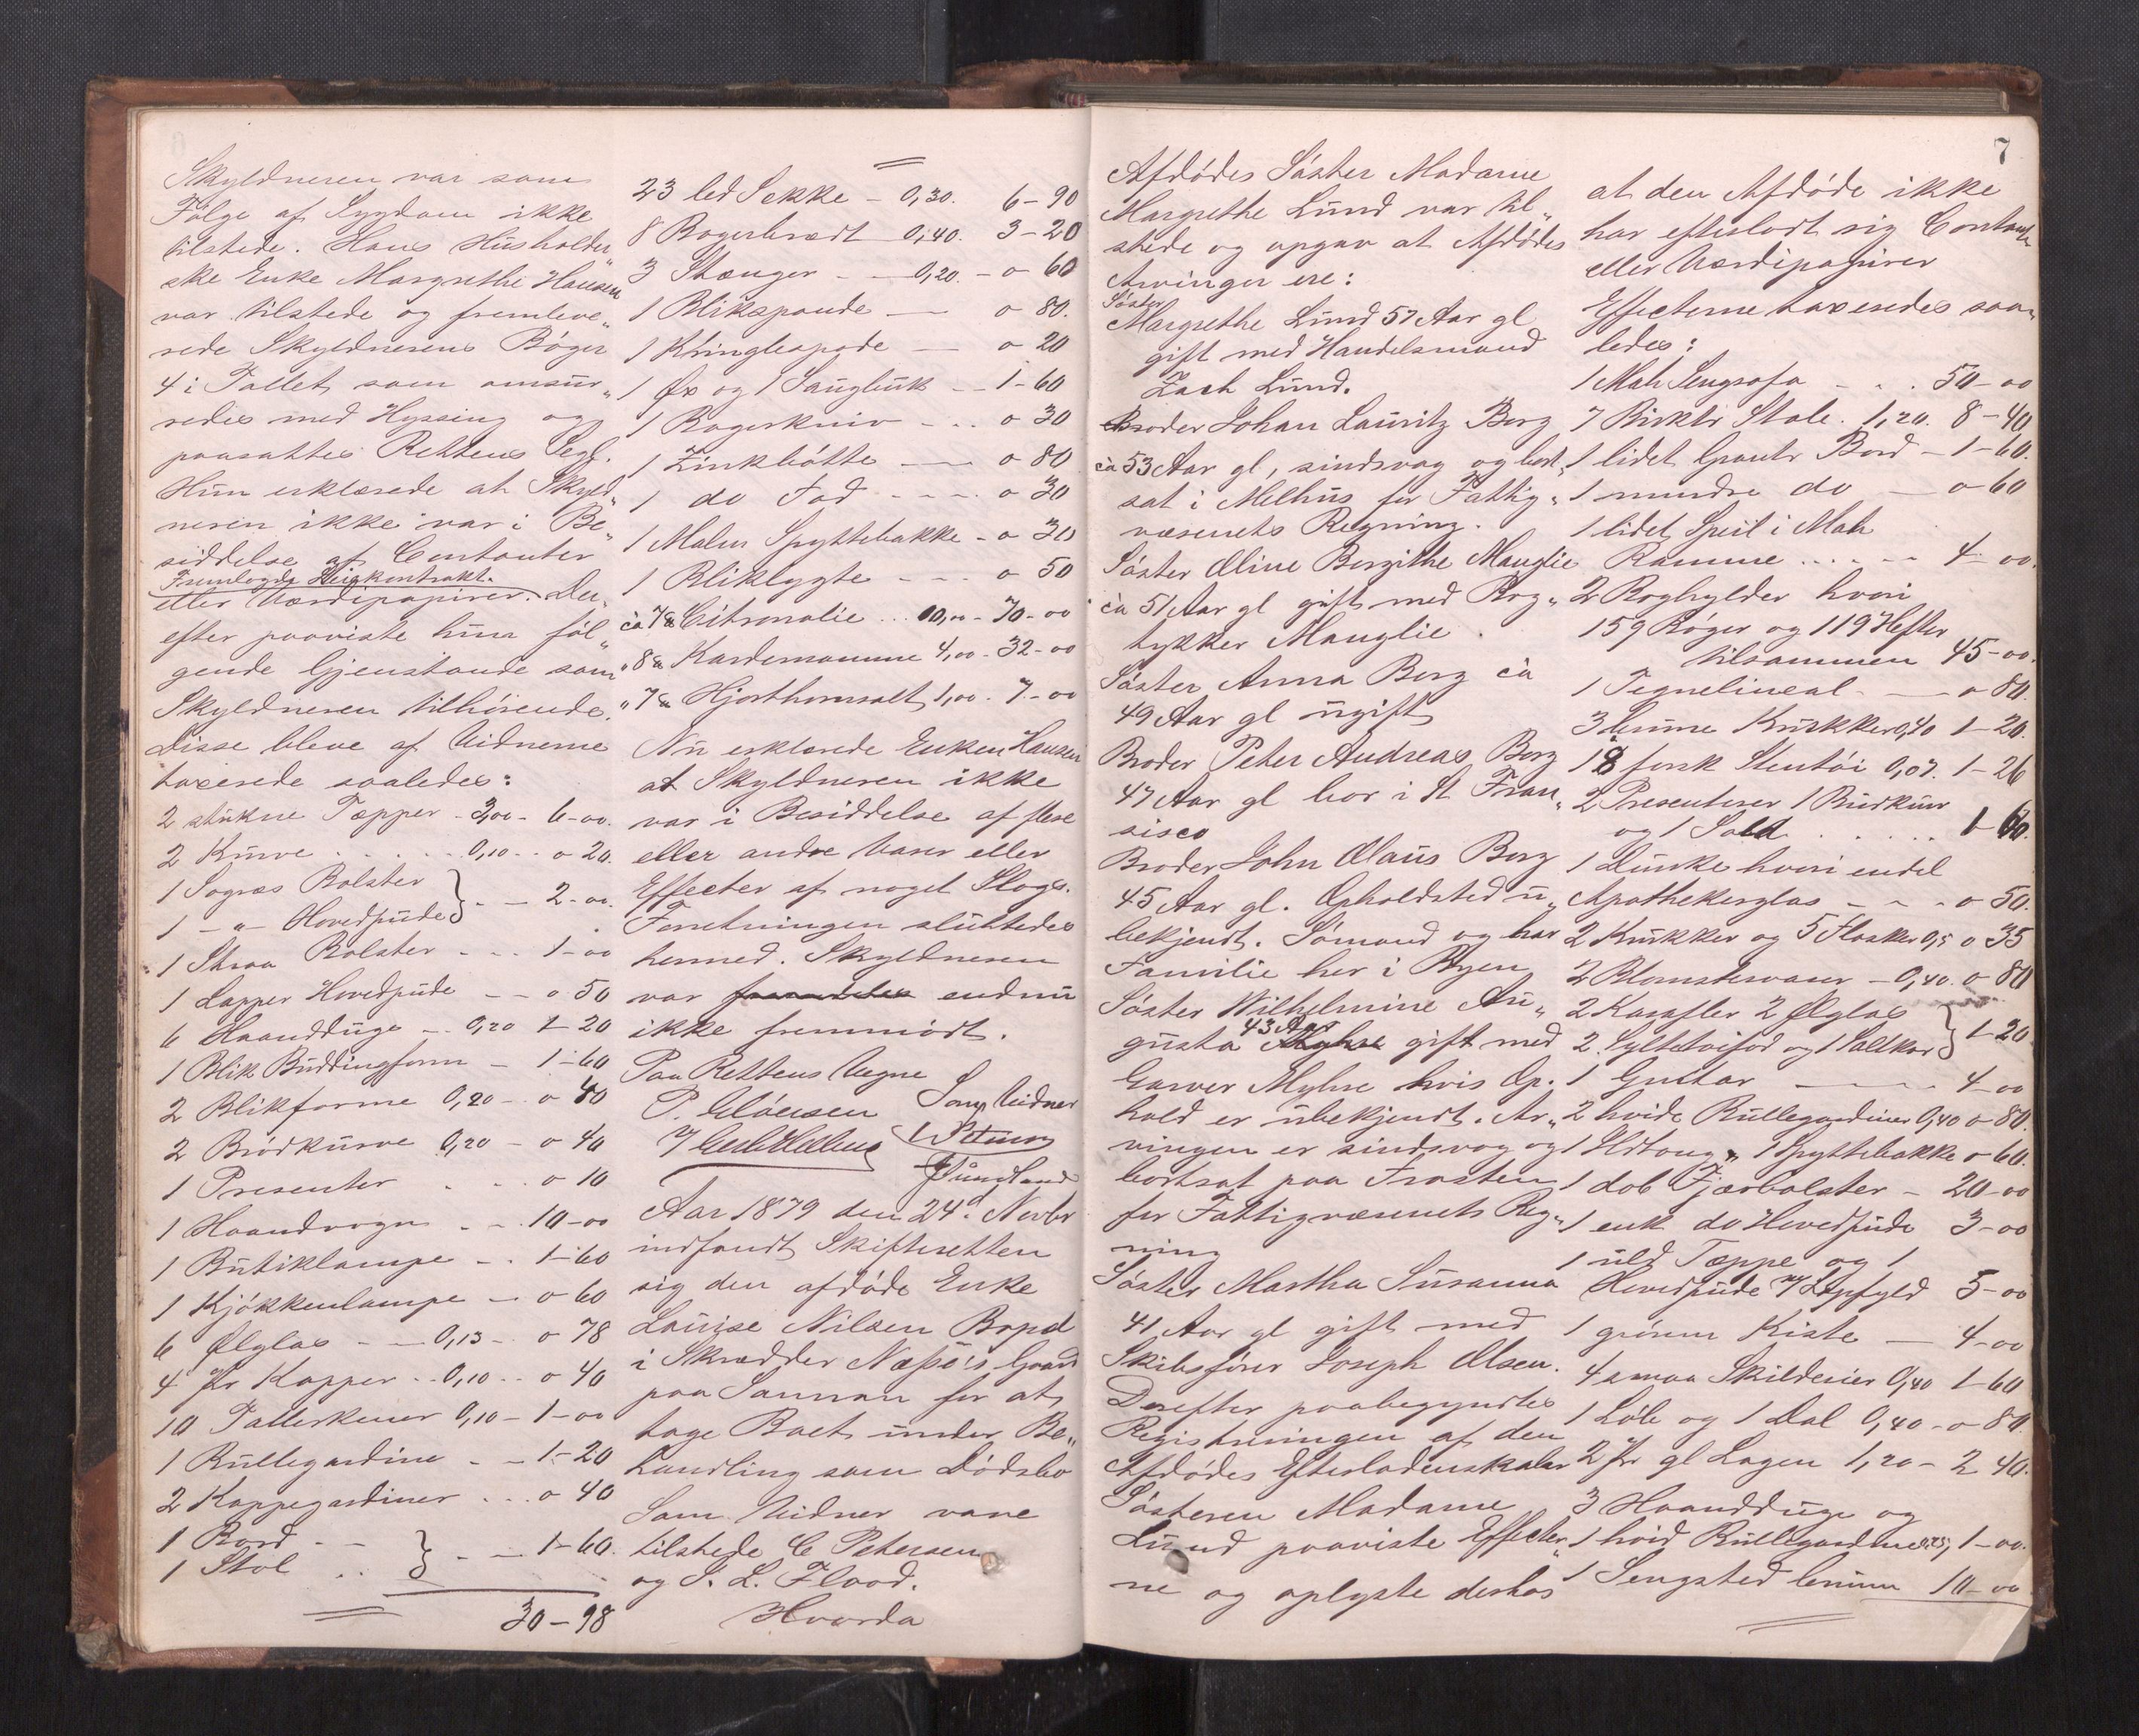 Skyldneren var som
Følge af Sygdom ikke
tilstede. Hans Husholder„
ske Enke Margrethe Hansen
var tilstede og fremleve„
rede Skyldnerens Bøger
4 i Tallet som omsur„
redes med Hyssing og
paasattes Rettens Segl.
Hun erklærede at Skyld„
neren ikke var i Be„
siddelse af Contanter
Fremlagde Leiekontrakt.
eller Værdipapirer. Der„
efter paaviste hun føl„
gende Gjenstande som
Skyldneren tilhørende.
Disse bleve af Vidnerne
taxerede saaledes:
2 stukne Tæpper - 3,00 - 6-00.
2 Kurve . . . . 0,10 . . o 20.
1 Søgræs Bolster
1 -"- Hovedpude } - - 2-00.
1 Straa Bolster - - - 1-00
1 Lapper Hovedpude - - o 50
6 Haandduge - 0,20 1-20
1 Blik Buddingform - 1-60
2 Blikforme 0,20 - o 40
2 Brødkurve 0,20 - o 40
1 Presenter . . . o 10
1 Haandvogn - - 10-00
1 Butiklampe - . 1-60
1 Kjøkkenlampe - o 60
6 Ølglas - - 0,13 - o 78
4 Pr Kopper . . 0,10 . . o 40
10 Tallerkener 0,10 - 1-00
1 Rullegardine - - 1-20
2 Kappegardiner . . . o 40
1 Bord - -
1 Stol . . } - - 1-60.
30-98
23 led Sekke - 0,30. 6-90
8 Bagerbrædt 0,40. 3-20
3 Stænger - - 0,20. - o 60
1 Blikspande - o 80.
1 Kringlespade - o 20
1 Øx og 1 Saugbuk - - 1-60
1 Bagerkniv - . . o 30
1 Zinkbøtte - o 80
1 do Fad - - - . o 30
1 Malm Spyttebakke - o 30
1 Bliklygte - - - o 50
ca 7 ℔ Citronolie . . . 10,00 - 70-00
" 8 ℔ Kardemomme 4,00 - 32-00
" 7 ℔ Hjorthornsalt 1,00 - 7-00
Nu erklærede Enken Hansen
at Skyldneren ikke
var i Besiddelse af flere
eller andre Varer eller
Effecter af noget Slags.
Forretningen sluttedes
hermed. Skyldneren
var endnu
ikke fremmødt.
Paa Rettens Vegne
P. Som Vidner
Aar 1879 den 24d. Novbr
indfandt Skifteretten
sig den afdøde Enke
Louise Nilsen Bopæl
i Skrædder Næssø's Gaard
paa Sannan for at
tage Boet under Be„
handling som Dødsbo
Som Vidner vare
tilstede C Petersen
og S. L. Flood.
Hvorda
7
Afdødes Søster Madame
Margrethe Lund var til„
stede og opgav at Afdødes
Arvinger ere:
Søster
Margrethe Lund 57 Aar gl
gift med Handelsmand
Zach Lund.
Broder Johan Lauritz Berg
ca 53 Aar gl, sindsvag og bort„
sat i Melhus for Fattig„
væsenets Regning.
Søster Oline Bergithe Manglie
ca 51 Aar gl gift med Bog„
trykker Manglie.
Søster Anna Berg ca
49 Aar gl ugift
Broder Peter Andreas Berg
47 Aar gl bor i St Fran„
sisco
Broder John Olaus Berg
45 Aar gl. Opholdsted u„
bekjendt. Sømand og har
Familie her i Byen
Søster Wilhelmine Au„
gusta 43 Aar gift med
Garver Myhre hvis Op„
hold er ubekjendt. Ar„
vingen er sindsvag og
bortsat paa Frosten
for Fattigvæsenets Reg„
ning
Søster Martha Susanna
41 Aar gl gift med
Skibsfører Joseph Olsen.
Derefter paabegyndtes
Registreringen af den
Afdødes Efterladenskaber
Søsteren Madame
Lund paaviste Effecter„
ne og oplyste derhos
at den Afdøde ikke
har efterladt sig Contant„
eller Værdipapirer
Effecterne taxeredes saa„
ledes:
1 Mah Sengsofa - . . 50-00
7 Birktr Stole. 1,20. 8-40
1 lidet Grantr Bord - 1-60.
1 mindre do - o 60
1 lidet Speil i Mah
Ramme . . . - - 4-00.
2 Boghylder hvori
159 Bøger og 119 Hefter
tilsammen 45-00.
1 Tegnelineal - - o 80.
3 Krukker 0,40 1-20.
18 forsk Stentøi 0,07. 1-26
2 Presenterer 1 Brødkurv
og 1 Sold . . . . . 1-60.
1 Dunke hvori endel
Apothekerglas - - - o 50.
2 Krukker og 5 Flasker 0,5 o 35
2 Blomstervaser - 0,40. o 80
2 Karafler 2 Ølglas
2 Syltetøifad og 1 Saltkar } 1-20
1 Guitar - - - 4-00
2 hvide Rullegardiner 0,40 o 80.
1 Ildtang, 1 Spyttebakke o 60.
1 dob Fjærbolster - 20-00
1 enk do Hovedpude 3-00
1 uld Tæppe og 1
Hovedpude 5-00
1 grønm Kiste - 4-00
4 smaa Skilderier 0,40 1-60
1 Løb og 1 Dal 0,40 - o 80.
2 Pr gl Lagen 1,20 - 2 40.
3 Haandduge og
1 hvid Rullegardine 0,25, 1-00.
1 Sengsted 10-00